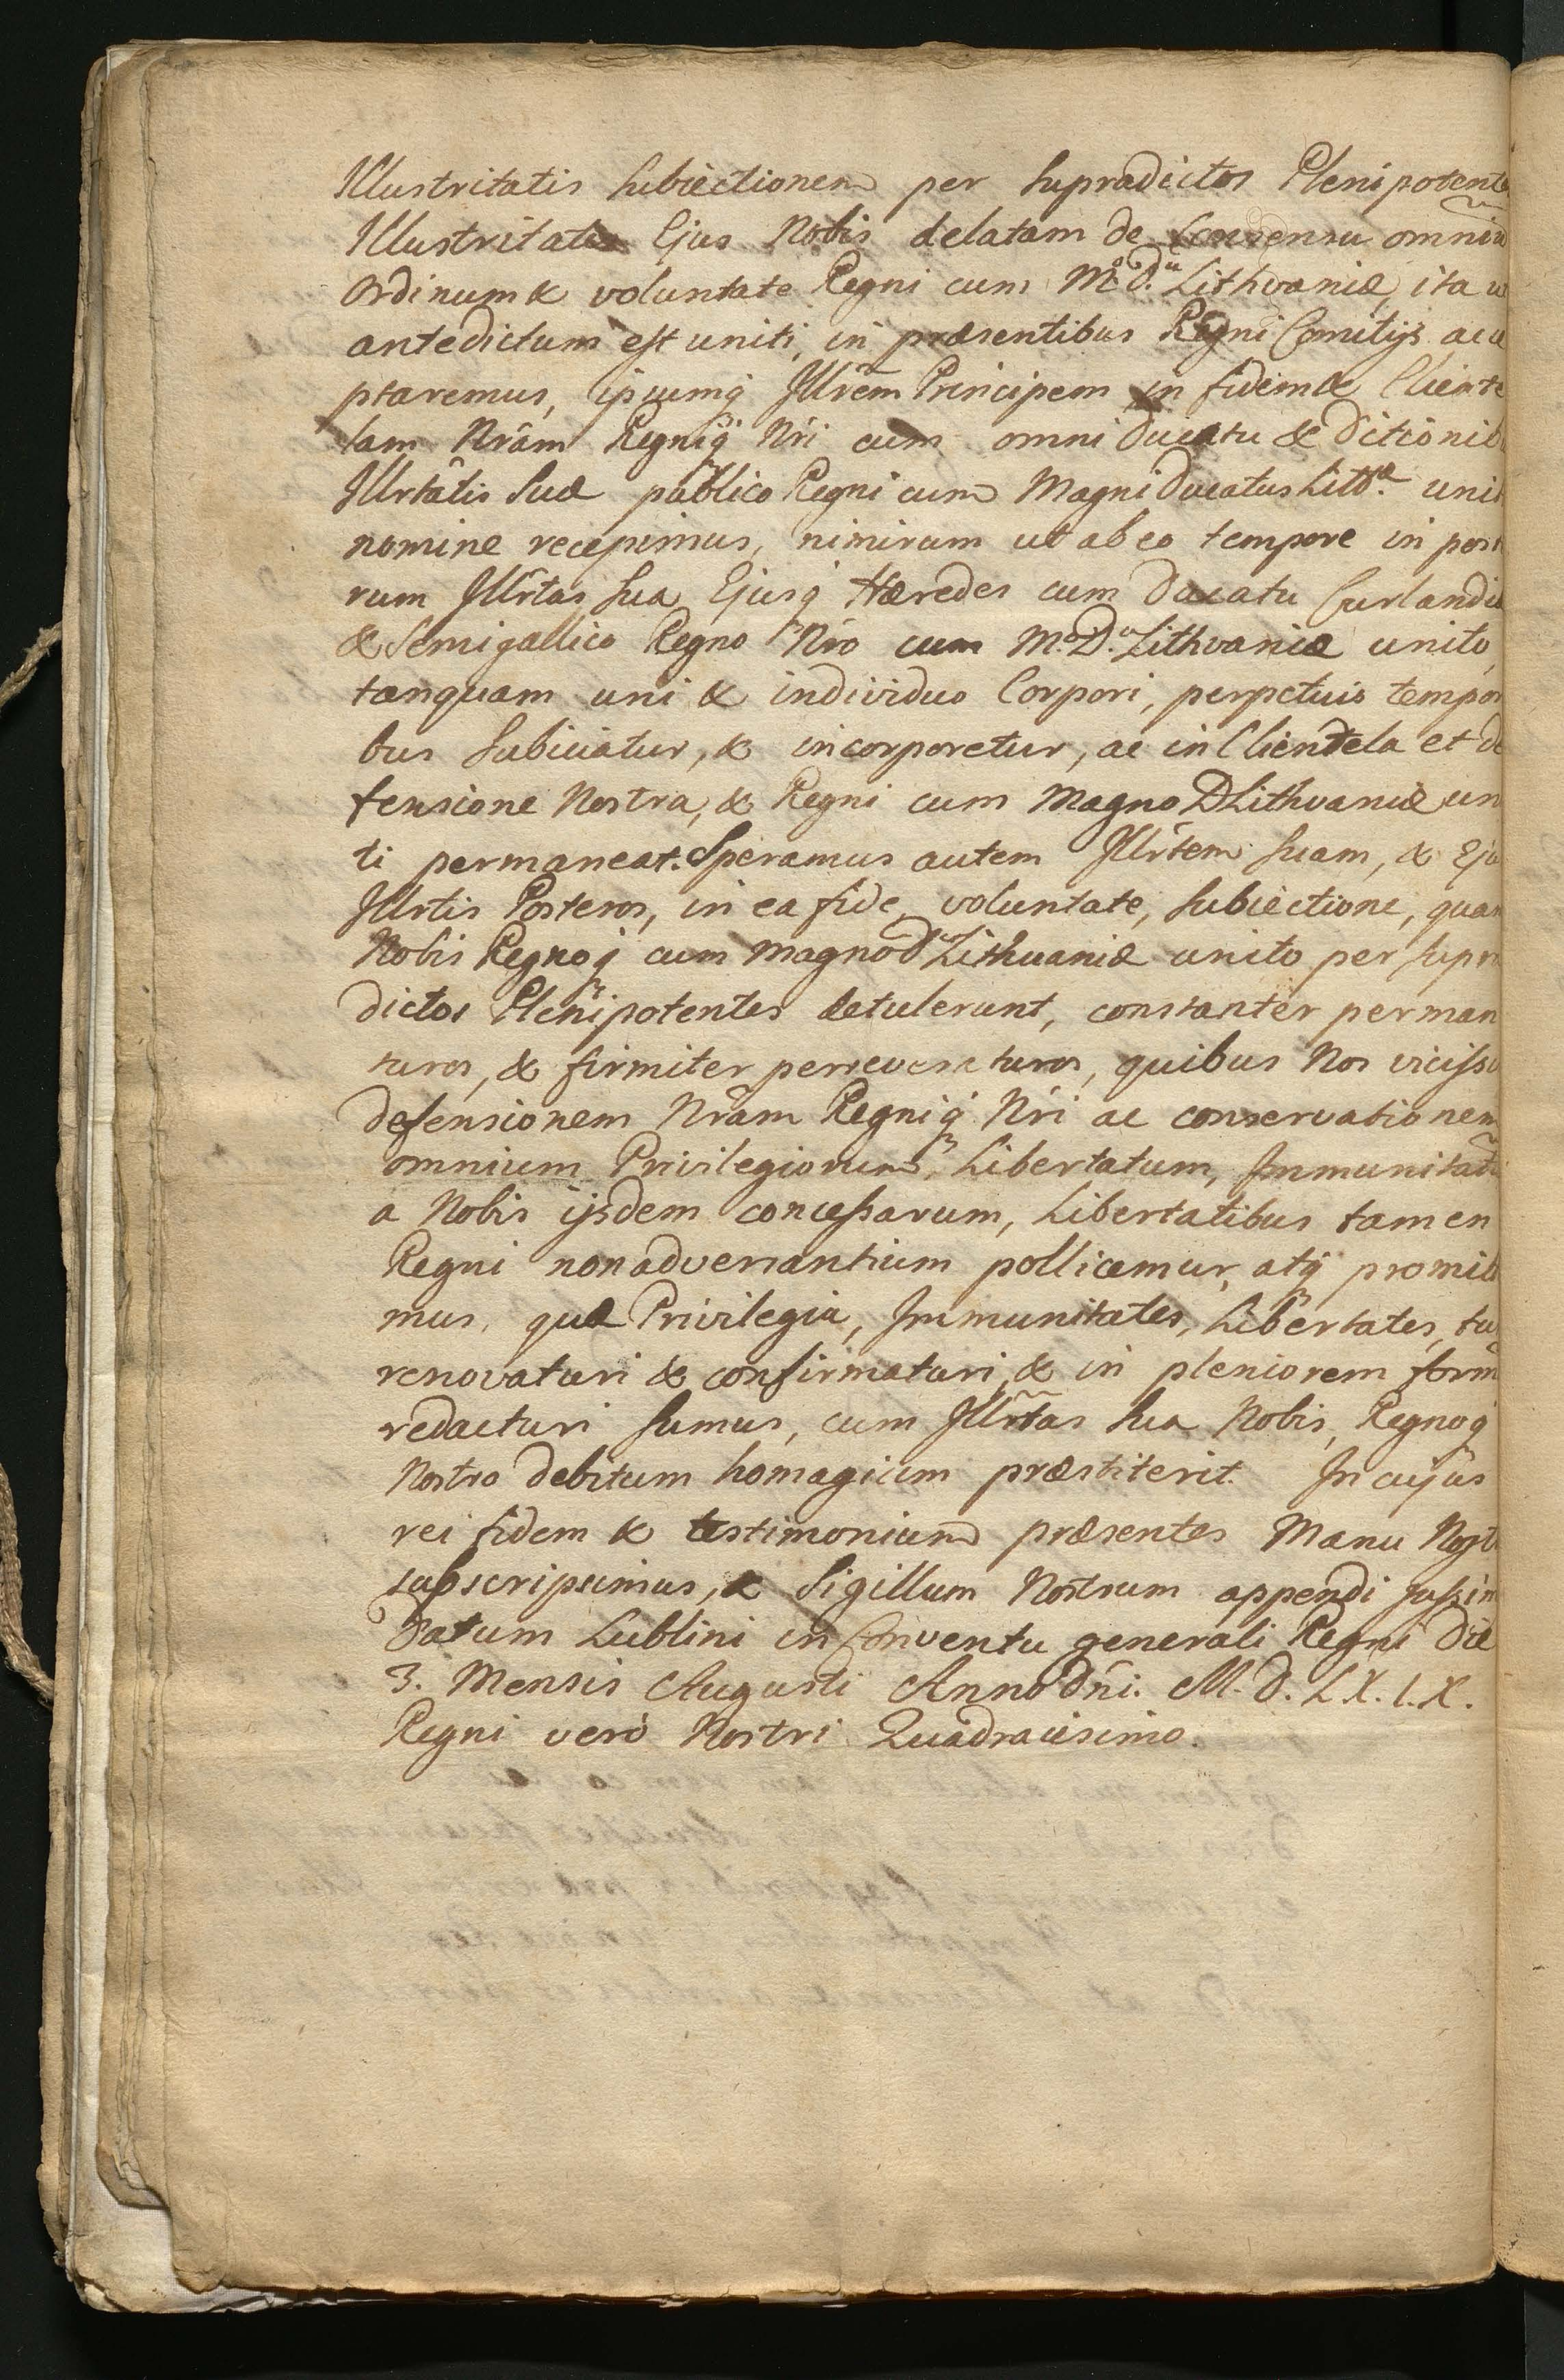 Illustritatis Subiectionem per Supradictos Plenipotente
Illustritatis Ejus Nobis delatam de Consensu omniũ
Ordinum & voluntate Regni cum M.º D.ᵘ Lithvaniæ, ita u
antedictum est uniti, in præsentibus Regni Comitijs acce
ptaremus, ipsumq̃ Illr̃em Principem in fidem & Cliente
lam Nr̃am Regniq̃ Nr̃i cum omni Ducatu & Ditionib
Illrtãtis Suæ publico Regni cum Magni Ducatus Litt.æ unit
nomine recepimus, nimirum ut ab eo tempore in poste
rum Illr̃tas Sua Ejusq̃ Hæredes cum Ducatu Curlandiæ
& Semigallico Regno Nr̃o cum M.º D.ᵘ Lithvaniæ unito,
tanquam uni & individuo Corpori, perpetuis tempor
bus Subiiciatur, & incorporetur, ac in Clientela et de
fensione Nostra, & Regni cum Magno D Lithvaniæ un
ti permaneat. Speramus autem Illr̃tem Suam, & Eju
Illrtis Posteros, in ea fide, voluntate, Subiectione, quam
Nobis Regnoq̃ cum Magno D Lithuaniæ unito per Supra
dictos Plenipotentes detulerunt, constanter perman
suros, & firmiter perseveraturos, quibus Nos vicissi
defensionem Nr̃am Regniq̃ Nr̃i ac conservationem
omnium Privilegiorum, Libertatum, Immunitatũ
a Nobis ijsdem concessarum, Libertatibus tamen
Regni non adversantium pollicemur, atq̃ promitt
mus, quæ Privilegia, Immunitates, Libertates, tu
renovaturi & confirmaturi, & in pleniorem form̃
redacturi Sumus, cum Illr̃tas Sua Nobis, Regnoq̃
Nostro debitum homagium præstiterit. In cujus
rei fidem & testimonium præsentes Manu Nost
subscripsimus, & Sigillum Nostrum appendi jussim
Datum Lublini in Conventu generali Regni Die
3. Mensis Augusti Anno Dñi. M. D. L X. I. X.
Regni verò Nostri Quadracesimo.